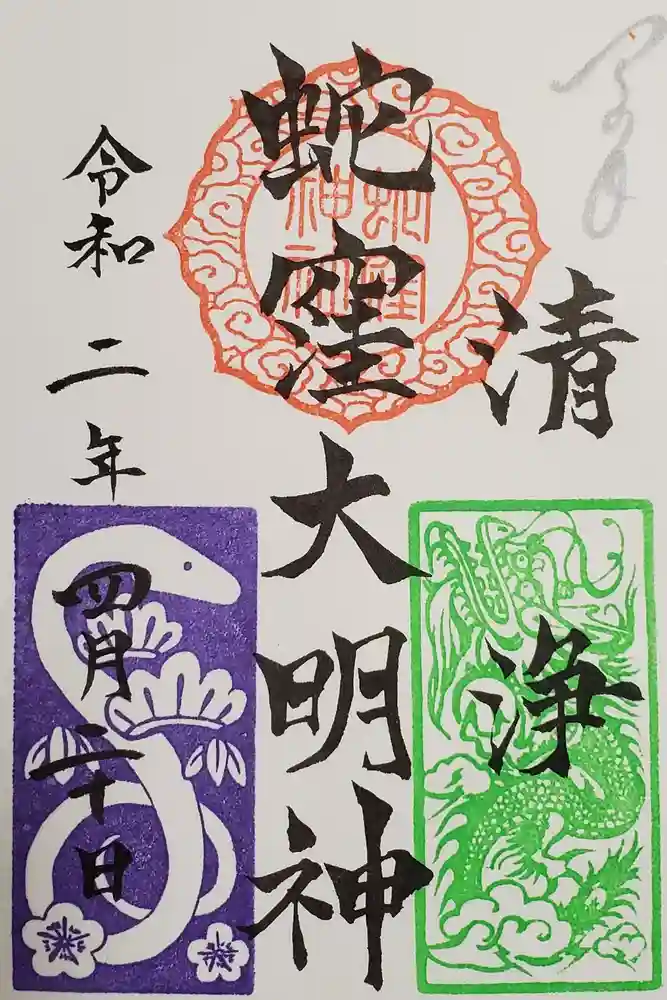 清浄
蛇窪大明神
蛇窪
神社
令和二年四月二十日